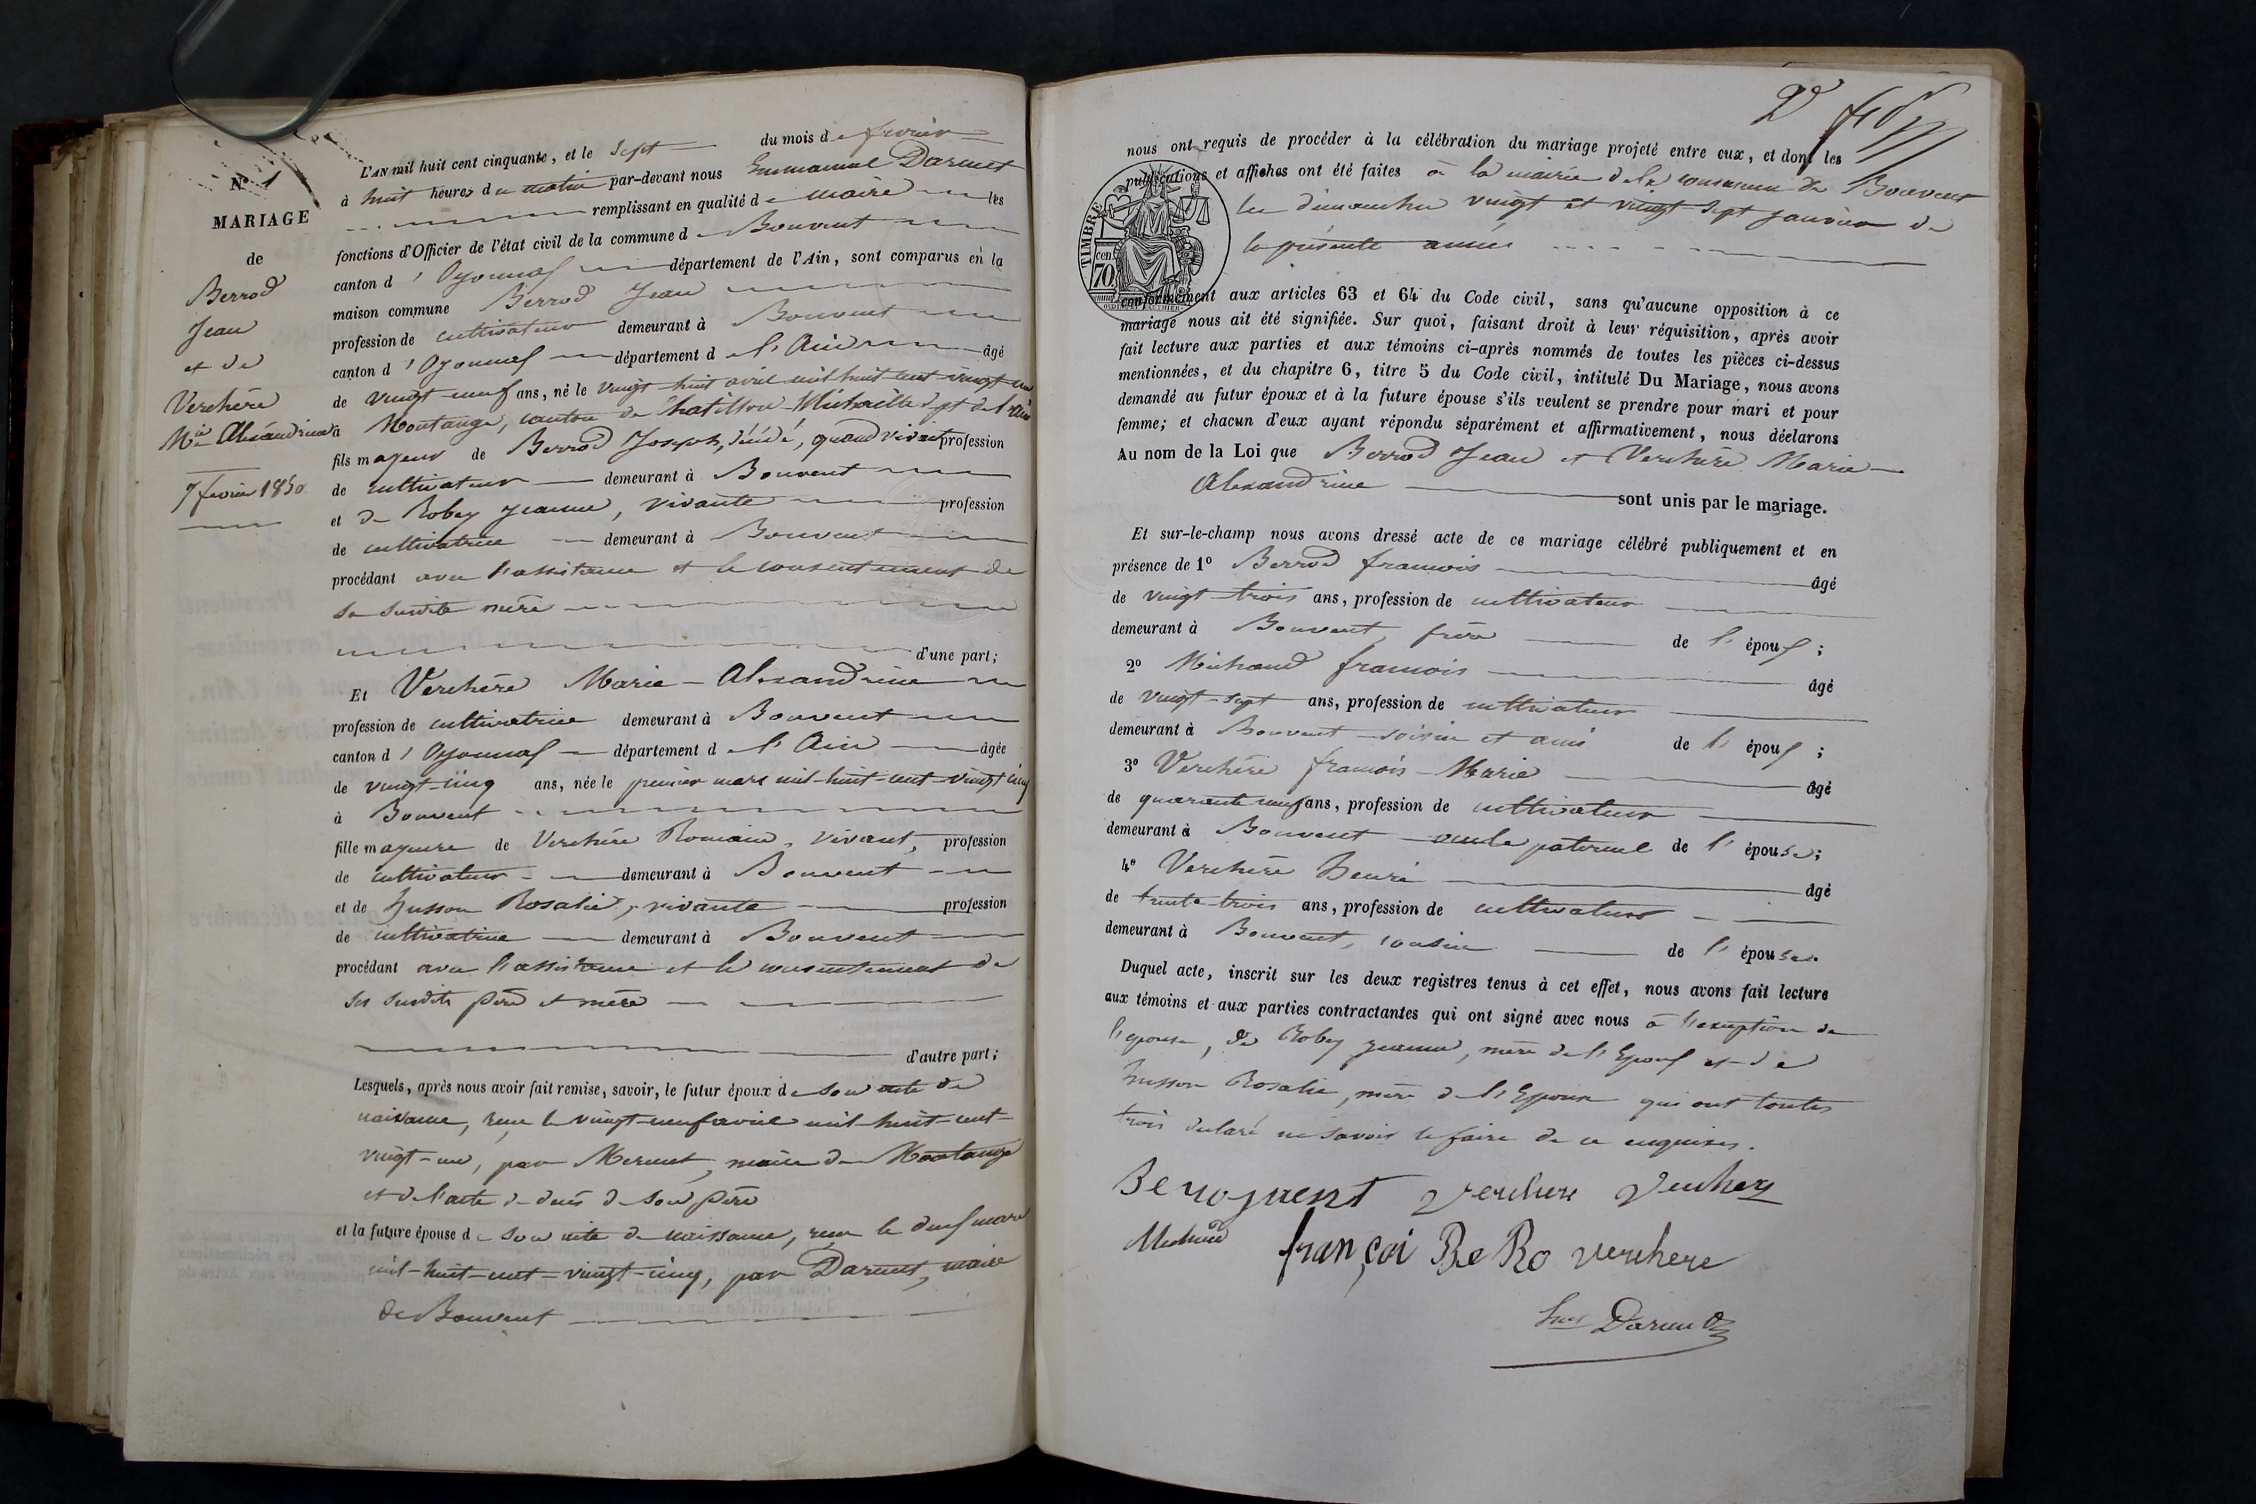 N° 1
MARIAGE
de
Berrod
Jean
et de
Verchère
Mie Alexandrine
7 février 1850
L'AN mil huit cent cinquante, et le sept du mois de février
à huit heures du matin par-devant nous Emmanuel Darmet
remplissant en qualité de maire les
fonctions d'Officier de l'état civil de la commune de Bouvent
canton d'Oyonnax département de l'Ain, sont comparus en la
maison commune Berrod Jean
profession de cultivateur demeurant à Bouvent
canton d'Oyonnax département de l'Ain âgé
de vingt-neuf ans, né le vingt-huit avril mil huit cent vingt un
à Montange, canton de Chatillon-Michaille dpt de l'Ain
fils majeur de Berrod Joseph, décédé, quand vivait profession
de cultivateur demeurant à Bouvent
et de Robez Jeanne, vivante profession
de cultivatrice demeurant à Bouvent
procédant avec l'assistance et le consentement de
sa susdite mère
d'une part;
Et Verchère Marie-Alexandrine
profession de cultivatrice demeurant à Bouvent
canton d'Oyonnax département de l'Ain âgée
de vingt-cinq ans, née le premier mars mil-huit-cent-vingt cinq
à Bouvent
fille majeure de Verchère Romain, vivant, profession
de cultivateur demeurant à Bouvent
et de Husson Rosalie, vivante profession
de cultivatrice demeurant à Bouvent
procédant avec l'assistance et le consentement de
ses susdits père et mère
d'autre part;
Lesquels, après nous avoir fait remise, savoir, le futur époux de son acte de
naissance, reçu le vingt-neuf avril mil-huit-cent-
vingt-un, par Mermet, maire de Montange
et de l'acte de décès de son père
et la future épouse de son acte de naissance, reçu le deux mars
mil-huit-cent-vingt-cinq, par Darmet, maire
de Bouvent
2e
nous ont requis de procéder à la célébration du mariage projeté entre eux, et dont les
publications et affiches ont été faites à la mairie de la commune de Bouvent
les dimanches vingt et vingt-sept janvier de
la présente année
TIMBRE
70 cen
conformément aux articles 63 et 64 du Code civil, sans qu'aucune opposition à ce
mariage nous ait été signifiée. Sur quoi, faisant droit à leur réquisition, après avoir
fait lecture aux parties et aux témoins ci-après nommés de toutes les pièces ci-dessus
mentionnées, et du chapitre 6, titre 5 du Code civil, intitulé Du Mariage, nous avons
demandé au futur époux et à la future épouse s'ils veulent se prendre pour mari et pour
femme; et chacun d'eux ayant répondu séparément et affirmativement, nous déclarons
Au nom de la Loi que Berrod Jean et Verchère Marie
Alexandrine sont unis par le mariage.
Et sur-le-champ nous avons dressé acte de ce mariage célébré publiquement et en
présence de 1° Berrod françois âgé
de vingt-trois ans, profession de cultivateur
demeurant à Bouvent, frère de l'époux;
2° Michaud françois âgé
de vingt-sept ans, profession de cultivateur
demeurant à Bouvent voisin et ami de l'époux;
3° Verchère françois-Marie âgé
de quarante neuf ans, profession de cultivateur
demeurant à Bouvent oncle paternel de l'épouse;
4° Verchère Henri âgé
de trente-trois ans, profession de cultivateur
demeurant à Bouvent, cousin de l'épouse.
Duquel acte, inscrit sur les deux registres tenus à cet effet, nous avons fait lecture
aux témoins et aux parties contractantes qui ont signé avec nous à l'exception de
l'épouse, de Robez Jeanne, mère de l'Epoux et de
Husson Rosalie, mère de l'Epouse qui ont toutes
trois déclaré ne savoir le faire de ce enquises.
verchere
françoi BeRo verchere
Darmet